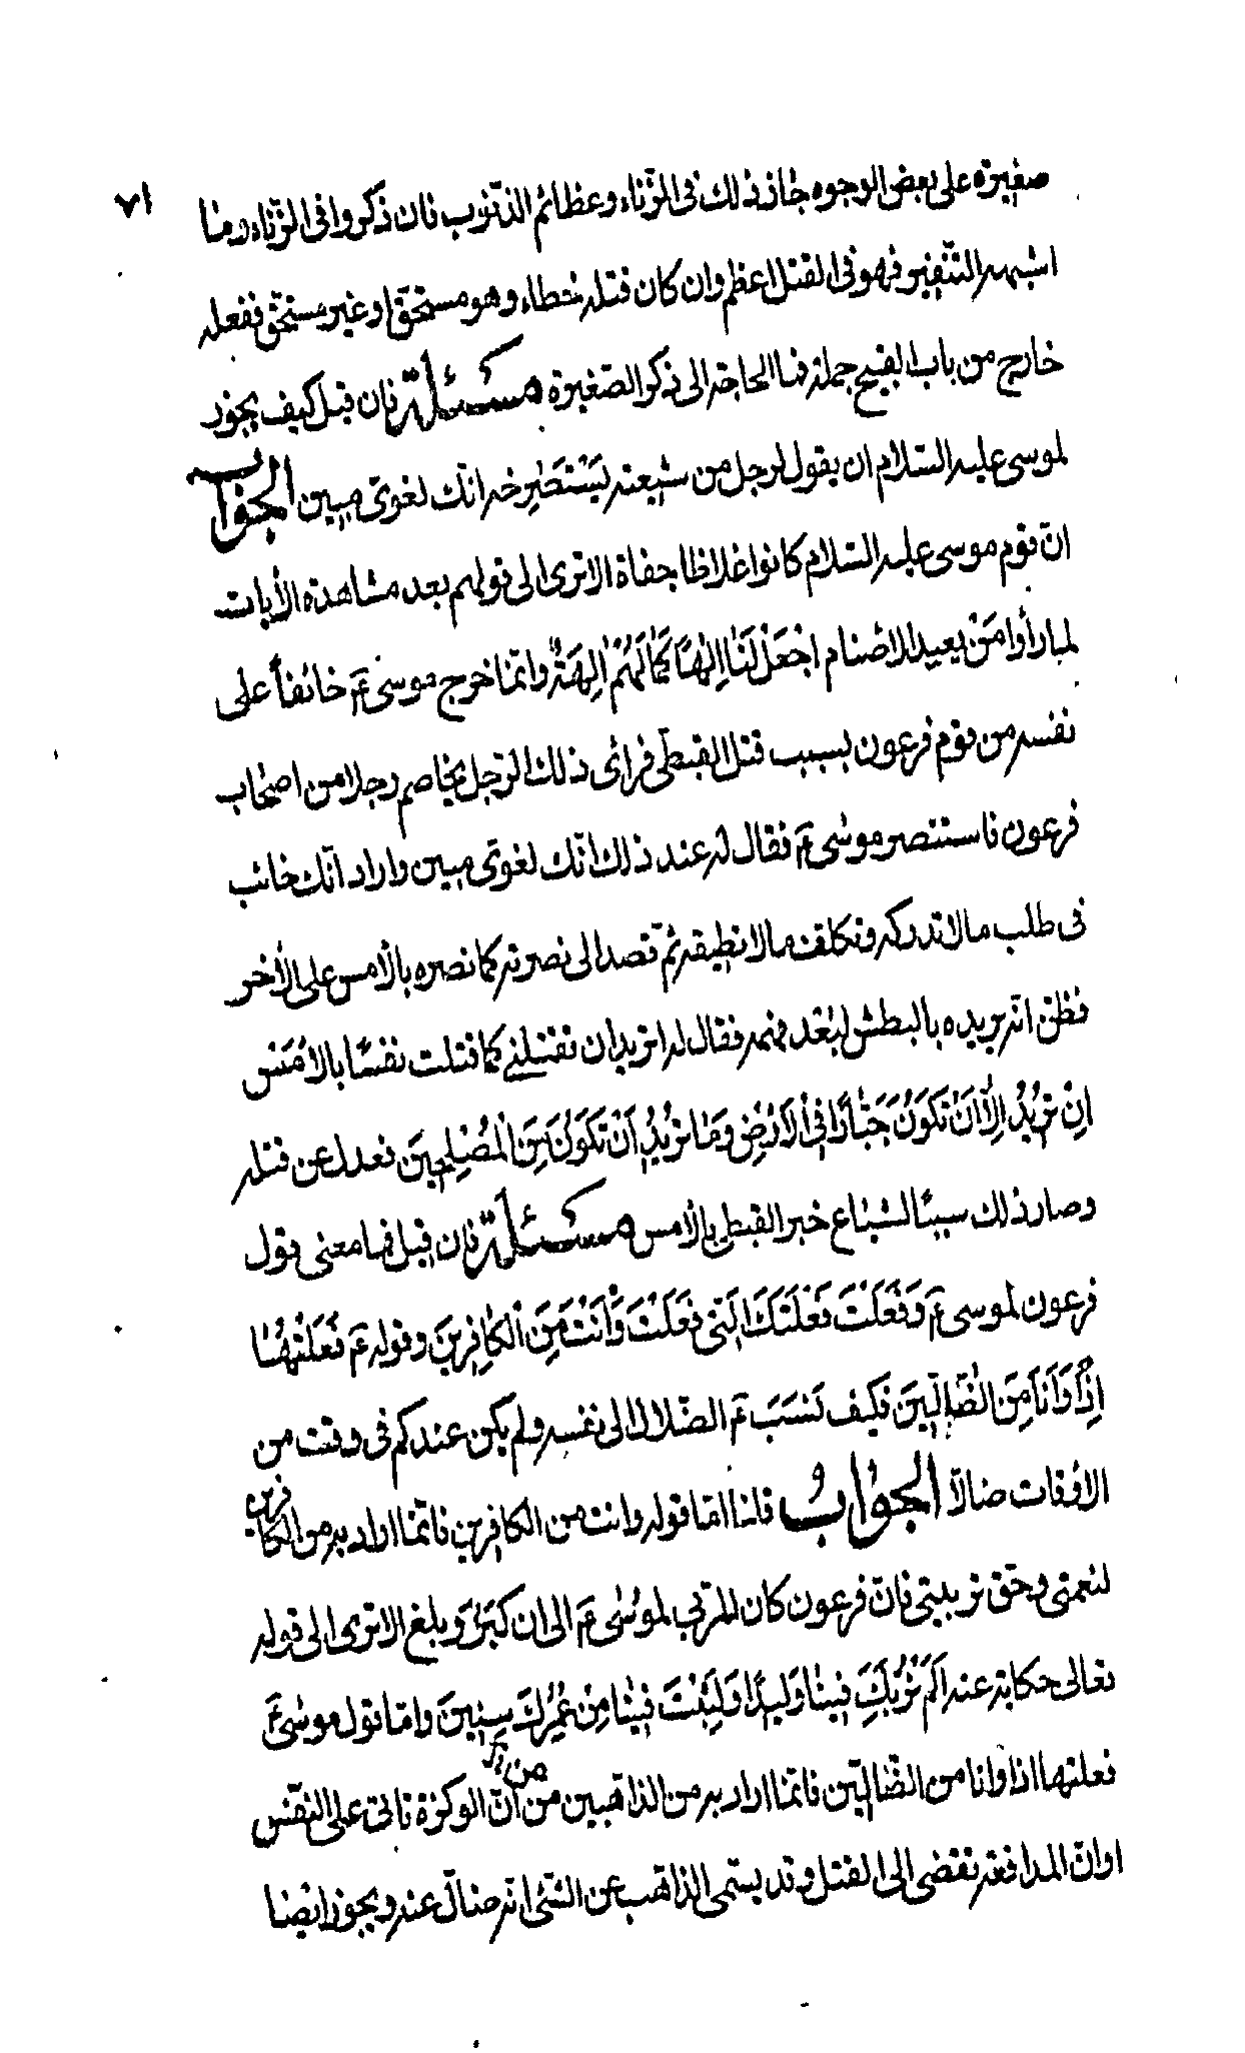 ٧١
صغيرة على بعض الوجوه جاز ذلك فى الزّناء وعظائم الذّنوب فان ذكروا فى الزّناء وما
اشبهه التّنفير فهو فى القتل اعظم وان كان قتله خطاء وهو مستحقّ او غير مستحقّ ففعله
خارج من باب القبيح جملة فما الحاجة الى ذكر الصّغيرة مسئلة فان قيل كيف يجوز
لموسى عليه السّلام ان يقول لرجل من شيعته يستصرخه انّك لغوىّ مبين الجواب
انّ قوم موسى عليه السّلام كانوا غلاظا جفاة الا ترى الى قولهم بعد مشاهدة الأيات
لمّا رأوا من يعبد الاصنام اجْعَلْ لَنا اِلهًا كَما لَهُمْ الِهَةٌ وانّما خرج موسى ع خائفاً على
نفسه من قوم فرعون بسبب قتل القبطىّ فرائى ذلك الرّجل يخاصم رجلا من اصحاب
فرعون فاستنصر موسى ع فقال له عند ذلك انّك لغوىّ مبين واراد انّك خائب
فى طلب ما لا تدركه وتكلف ما لا تطيقه ثمّ قصد الى نصرته كما نصره بالأمس على الأخر
فظنّ انّه يريده بالبطش لبعد فهمه فقال له اتريد ان تقتلنى كما قتلت نفسًا بالأمس
اِنْ تُريدُ اِلاّ اَنْ تَكوُنَ جَبّارًا فِى الاَرْضِ وَما تُريدُ اَنْ تَكوُنَ مِنَ الْمُصْلِحينَ فعدل عن قتله
وصار ذلك سببًا لشياع خبر القبطى بالأمس مسئلة فان قيل فما معنى قول
فرعون لموسى ع وَفَعَلْتَ فَعْلَتَكَ الَّتى فَعَلْتَ وَاَنْتَ مِنَ الْكافِرينَ وقوله ع فَعَلْتُها
اِذًا وَاَنَا مِنَ الضّالّينَ فكيف نَسَبَ ع الضّلال الى نفسه ولم يكن عندكم فى وقت من
الأوقات ضالاّ الجوابُ قلنا امّا قوله وانت من الكافرين فانّما اراد به من الكافرين
لنعمتى وحق تربيتى فانّ فرعون كان المربى لموسى ع الى ان كبر وبلغ الا ترى الى قوله
تعالى حكاية عنه اَلَمْ نُرَبِّكَ فينا وَليدًا وَلَبِثْتَ فينا مِنْ عُمُرِكَ سِنينَ وامّا قول موسى ع
فعلتها اذا وانا من الضّالّين فانّما اراد به من الذاهبين من انّ الوكزة تأتى على النّفس
او انّ المدافعة تفضى الى القتل وقد يسمّى الذاهب عن الشّئ انّه ضالّ عنه ويجوز ايضا